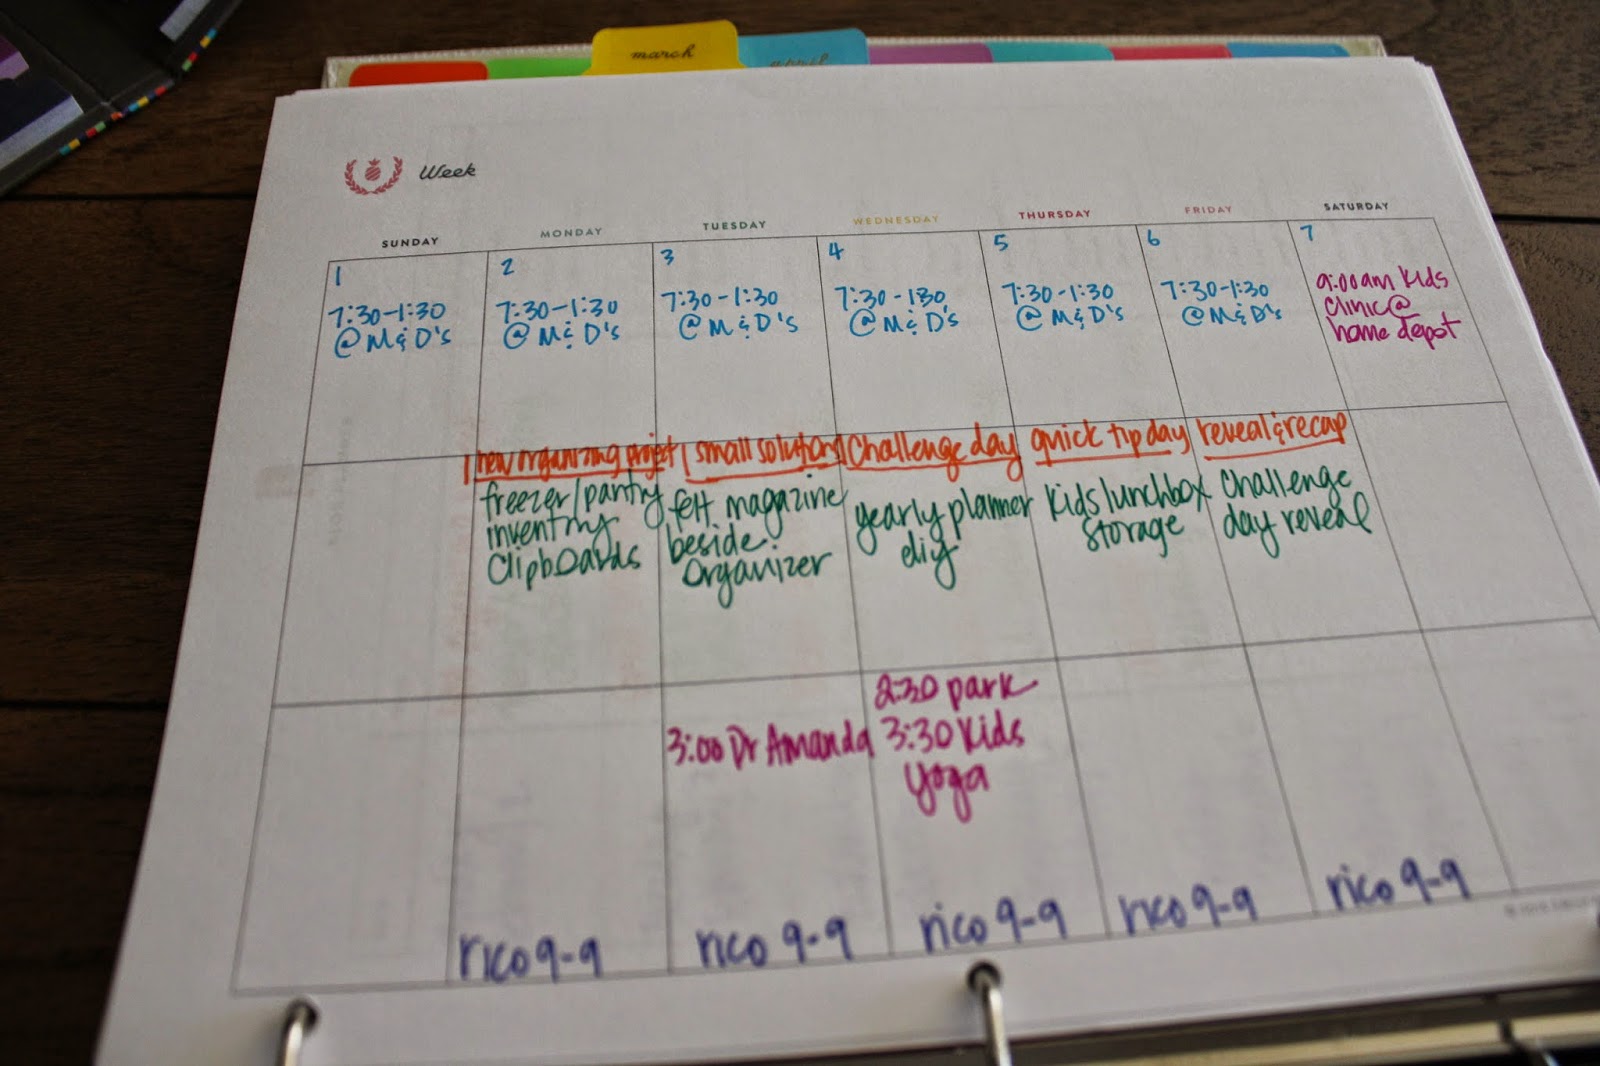 march
april
Week
SUNDAY MONDAY TUESDAY WEDNESDAY THURSDAY FRIDAY SATURDAY
1
7:30-1:30
@ M & D's
2
7:30-1:30
@ M & D's
3
7:30-1:30
@ M & D's
4
7:30-1:30
@ M & D's
5
7:30-1:30
@ M & D's
6
7:30-1:30
@ M & D's
7
9:00am kids
clinic @
home depot
new organizing project
freezer/pantry
inventry
clipboards
small solutions
felt magazine
beside
organizer
challenge day
yearly planner
diy
quick tip day
kids lunchbox
storage
reveal & recap
challenge
day reveal
3:00 Dr Amanda
2:30 park
3:30 kids
yoga
rico 9-9
rico 9-9
rico 9-9
rico 9-9
rico 9-9